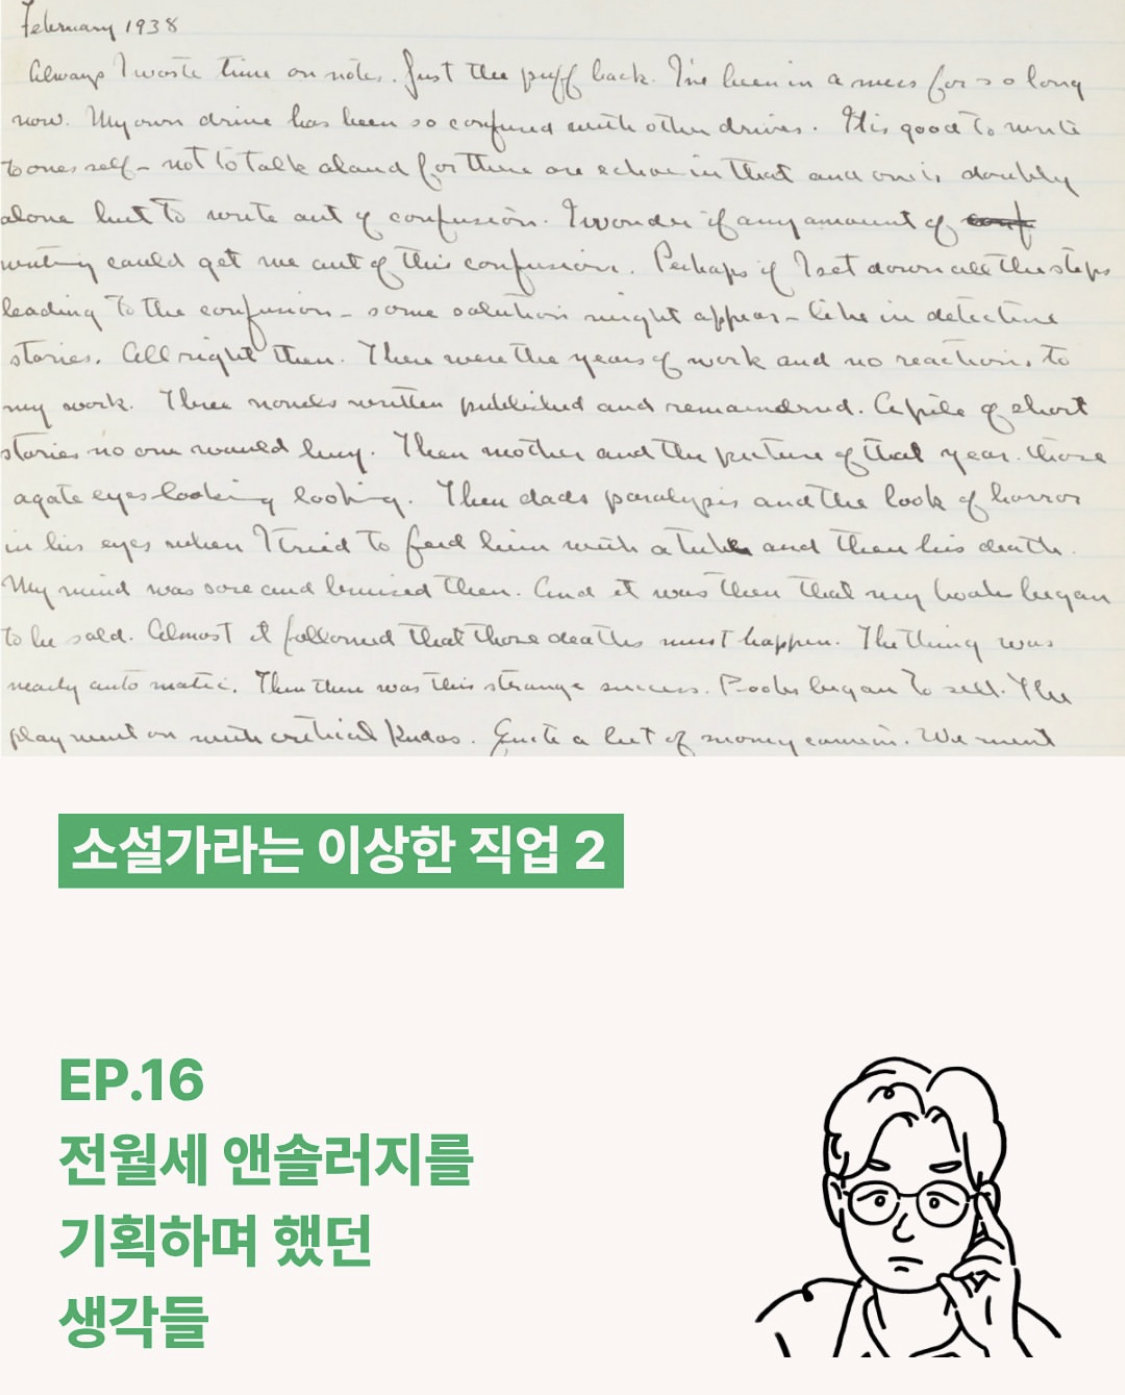 February 1938
Always I waste time on notes. Just the puff back. I've been in a mess for so long
now. My own drive has been so confused with other drives. It is good to write
to ones self – not to talk aloud for there are echoes in that and one is doubly
alone but to write out of confusion. I wonder if any amount of conf
writing could get me out of this confusion. Perhaps if I set down all the steps
leading to the confusion – some solution might appear – like in detective
stories. All right then. There were the years of work and no reactions to
my work. Three novels written published and remaindered. A pile of short
stories no one would buy. Then mother and the picture of that year. those
agate eyes looking looking. Then dads paralysis and the look of horror
in his eyes when I tried to feed him with a tube and then his death.
My mind was sore and bruised then. And it was then that my books began
to be sold. Almost it followed that those deaths must happen. The thing was
nearly automatic. Then there was this strange success. Books began to sell. The
play went on with critical kudos. Quite a lot of money came in. We went
소설가라는 이상한 직업 2
EP.16
전월세 앤솔러지를
기획하며 했던
생각들